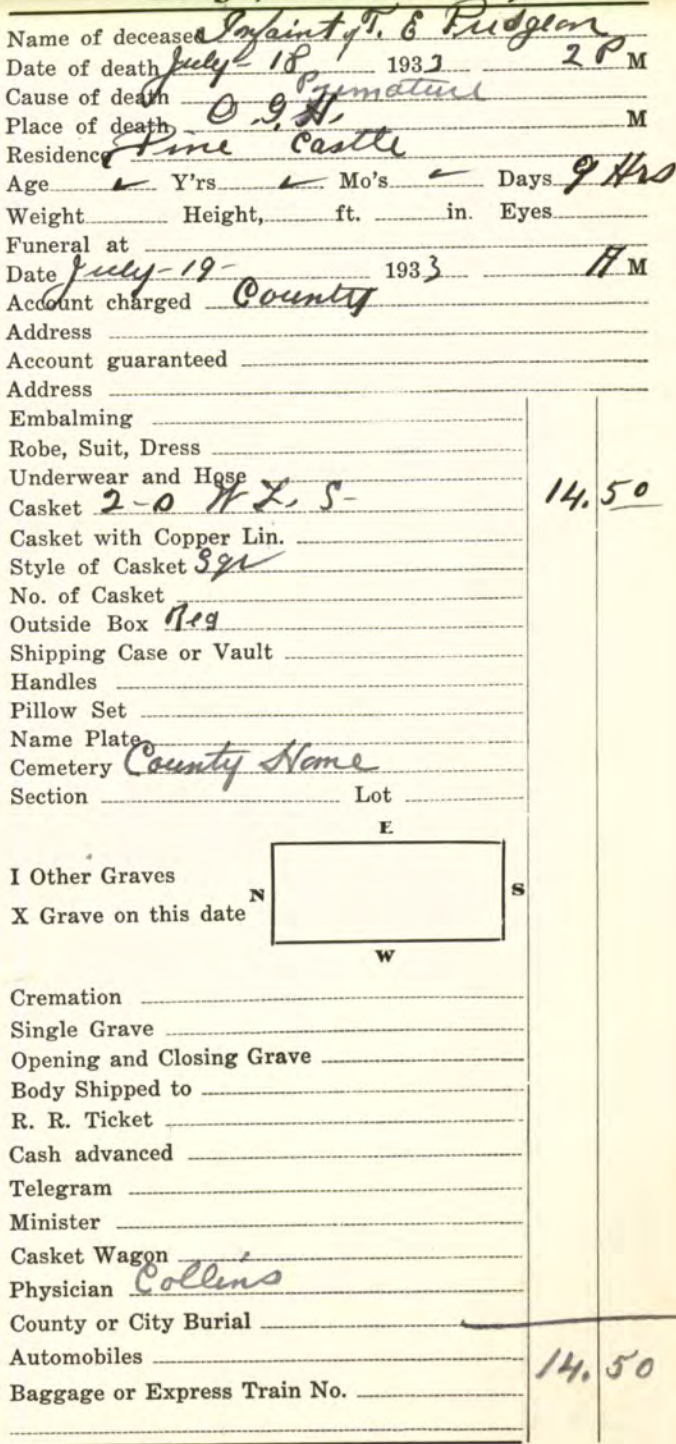 Name of deceased Infaint of T. E Pridgeon
Date of death July - 18 1933 2 P M
Cause of death Premature
Place of death O. G. H. M
Residence Pine Castle
Age ✓ Y'rs ✓ Mo's ✓ Days 9 Hrs
Weight Height, ft. in. Eyes
Funeral at
Date July - 19 - 1933 A M
Account charged County
Address
Account guaranteed
Address
Embalming
Robe, Suit, Dress
Underwear and Hose
Casket 2-0 W L. S- 14.50
Casket with Copper Lin.
Style of Casket Sqr
No. of Casket
Outside Box Reg
Shipping Case or Vault
Handles
Pillow Set
Name Plate
Cemetery County Home
Section Lot
E
I Other Graves
N S
X Grave on this date
W
Cremation
Single Grave
Opening and Closing Grave
Body Shipped to
R. R. Ticket
Cash advanced
Telegram
Minister
Casket Wagon
Physician Collins
County or City Burial
Automobiles 14.50
Baggage or Express Train No.